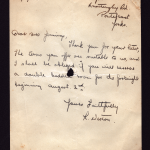 Pontefract
Yorks
Dear Mrs
Thank you for your letter
The terms you offer are suitable to us and
I shall be obliged if you will reserve
a double bedroom for the fortnight
beginning August 2nd.
Yours Faithfully